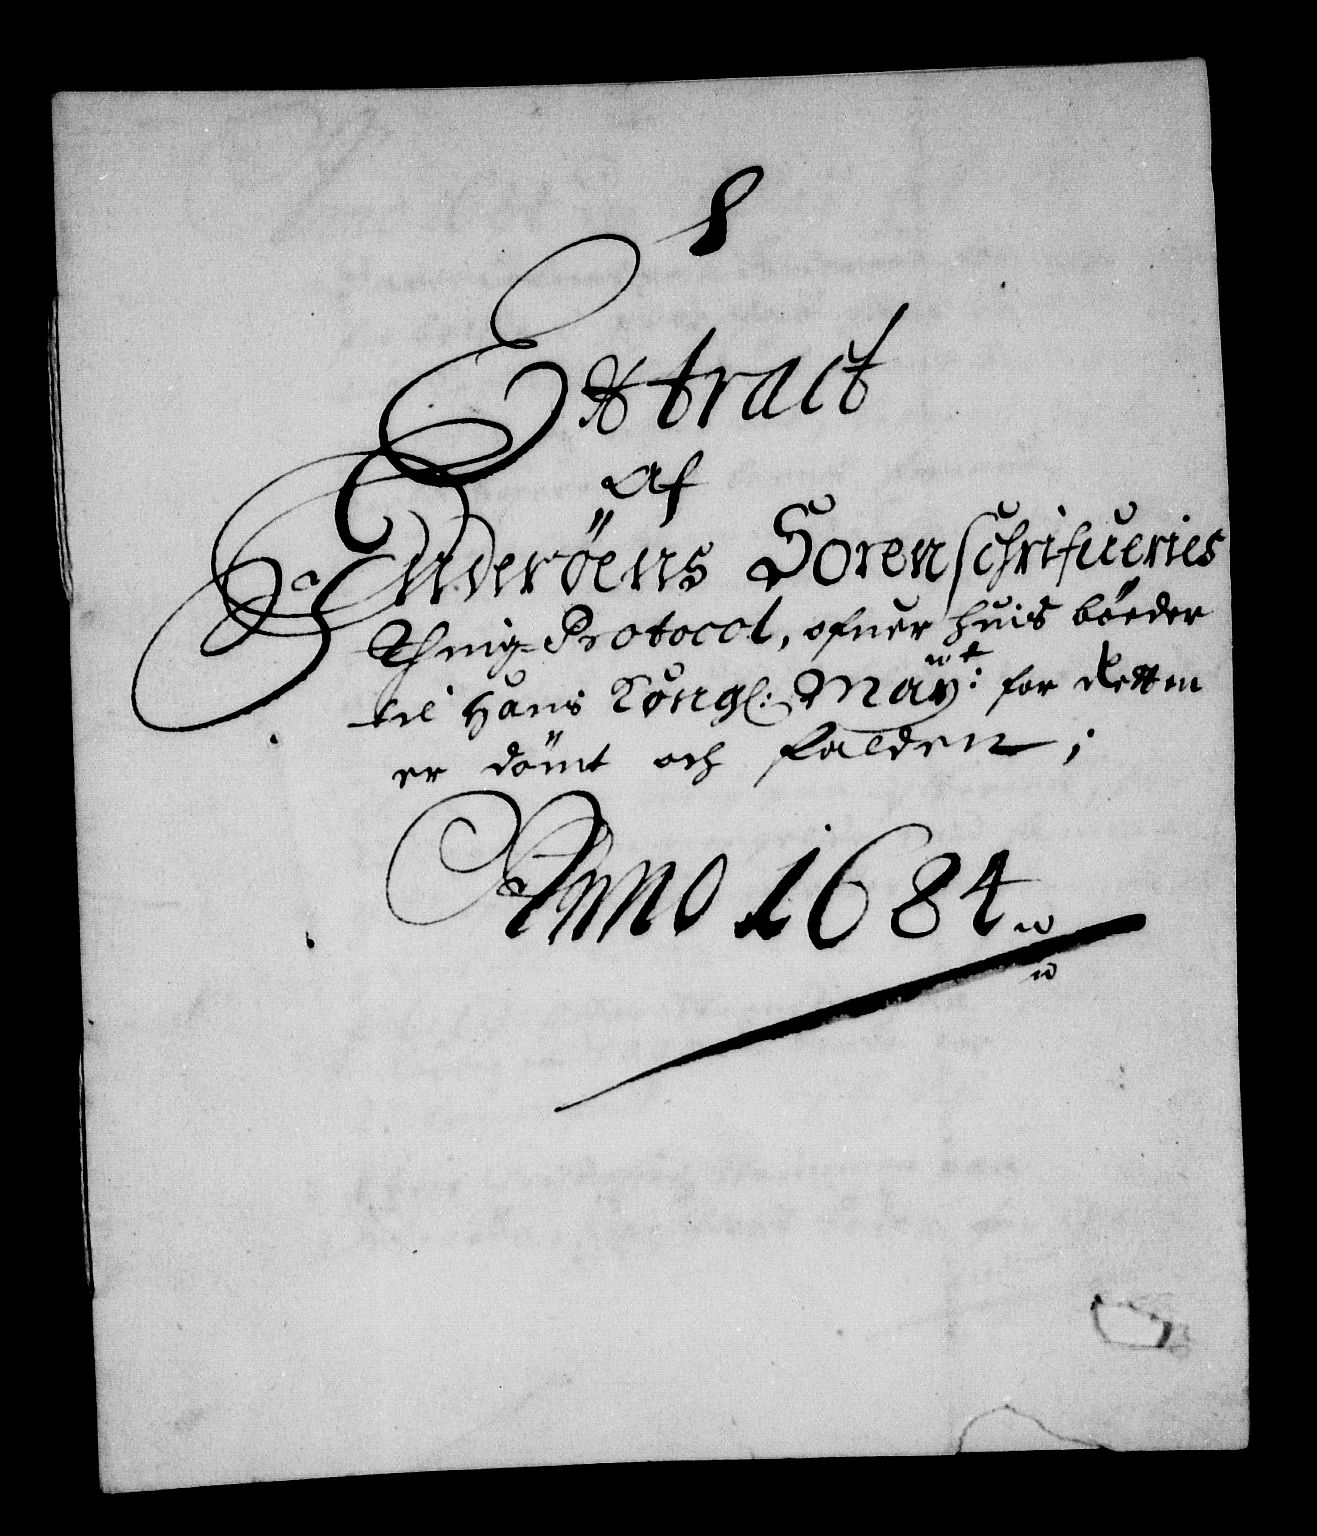 8
Extract
Af
Enderöens Sorenschrifueries
Thing-Protocol, ofuer huis böeder
til Hans Kongl: May:t for Retten
er dömt och falden;
Anno 1684